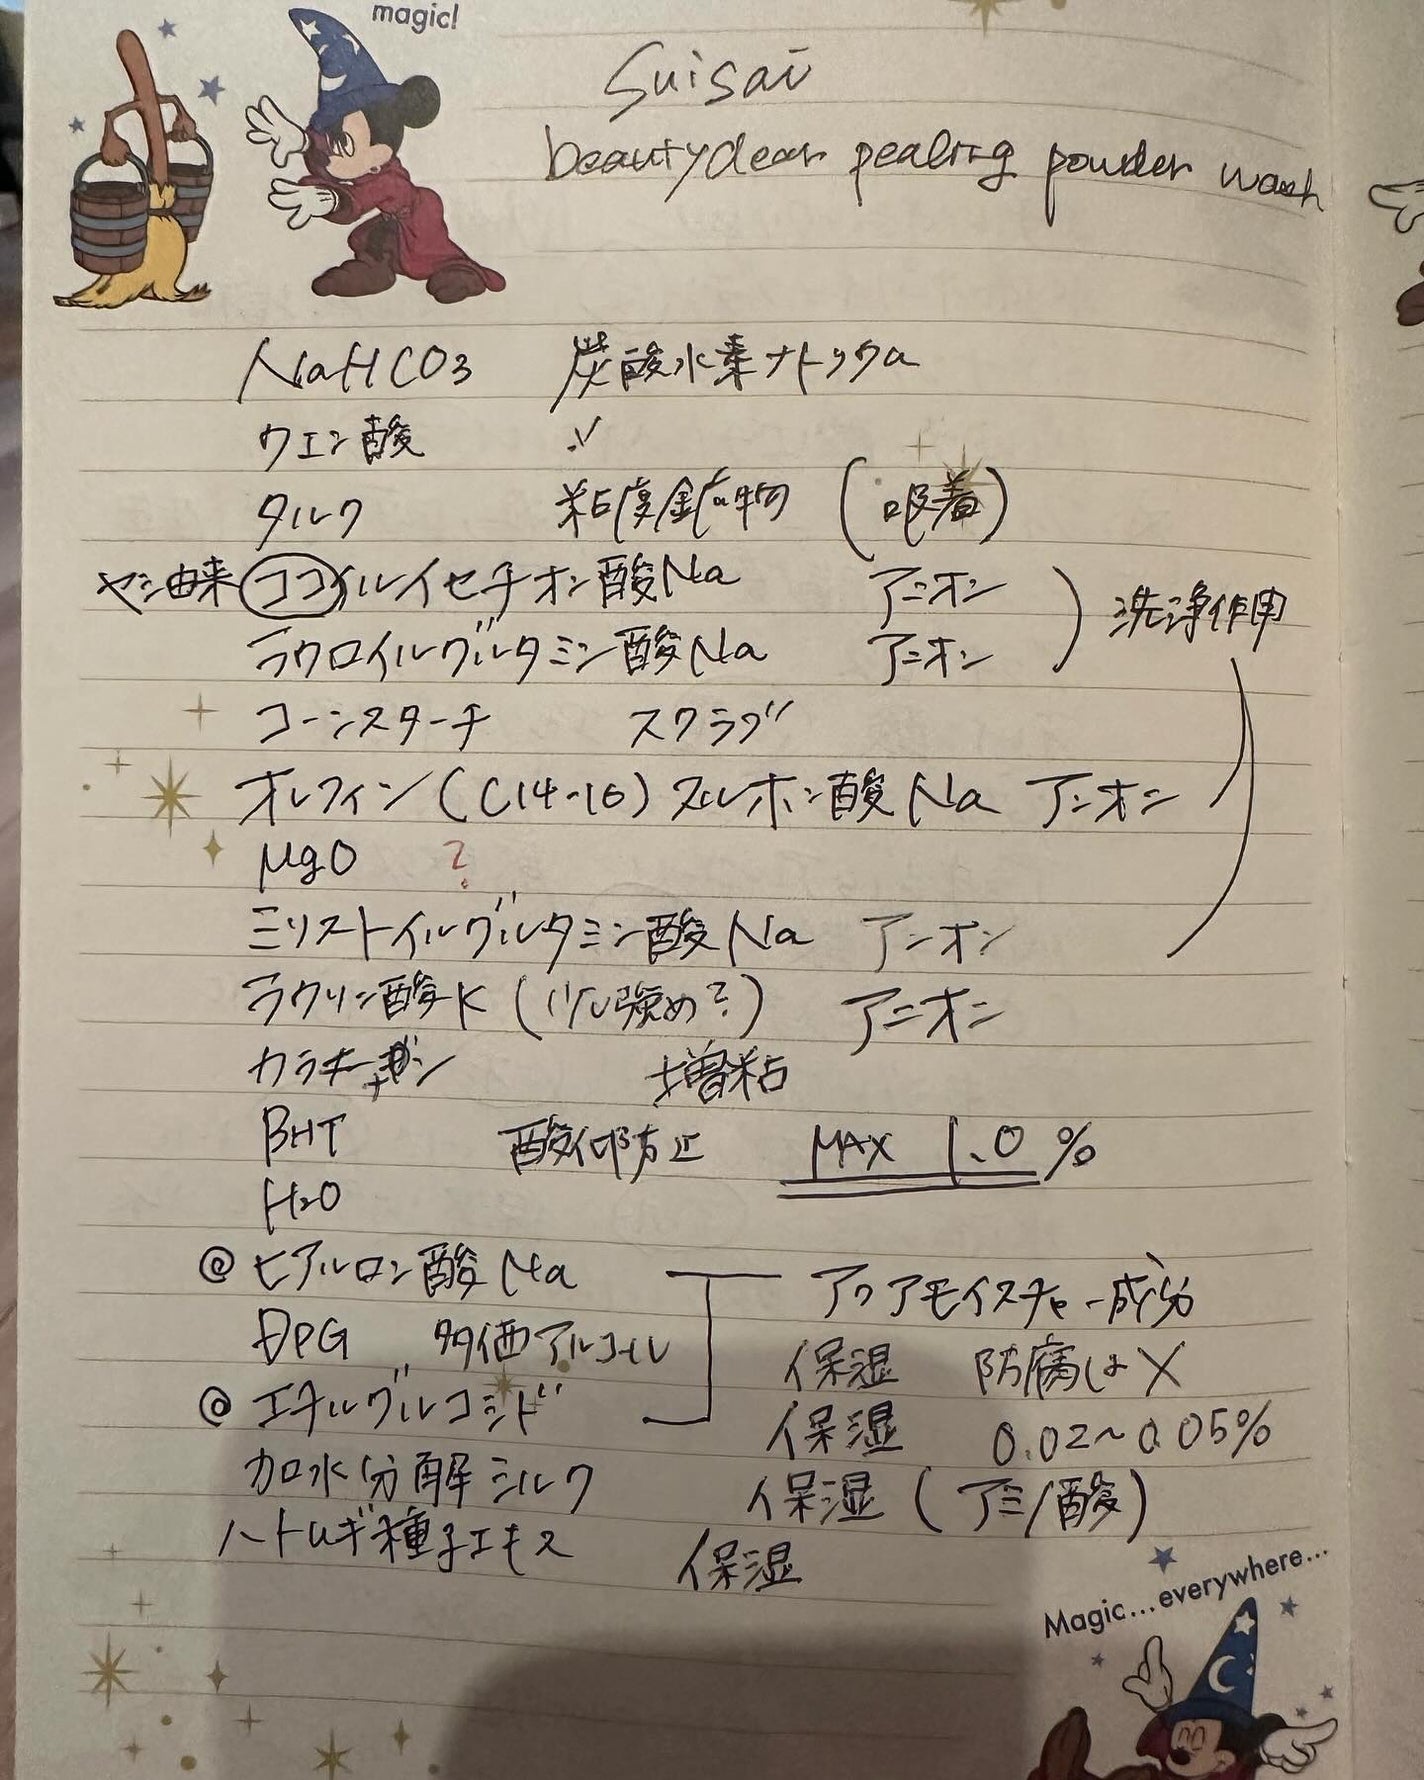 magic!
Suisai
beautyclear pealing powder wash
NaHCO3 炭酸水素ナトリウム
クエン酸 ✓
タルク 粘度鉱物 (吸着)
ヤシ由来 ココイルイセチオン酸Na アニオン 洗浄作用
ラウロイルグルタミン酸Na アニオン
コーンスターチ スクラブ
オレフィン(C14-16)スルホン酸Na アンオン
MgO ?
ミリストイルグルタミン酸Na アンオン
ラウリン酸K ( 強め?) アニオン
カラギーナン 増粘
BHT 酸化防止 MAX 1.0%
H2O
@ ヒアルロン酸Na アクアモイスチャー成分
DPG 多価アルコール 保湿 防腐は×
@ エチルグルコシド 保湿 0.02~0.05%
加水分解シルク 保湿 (アミノ酸)
ハトムギ種子エキス 保湿
Magic...everywhere...